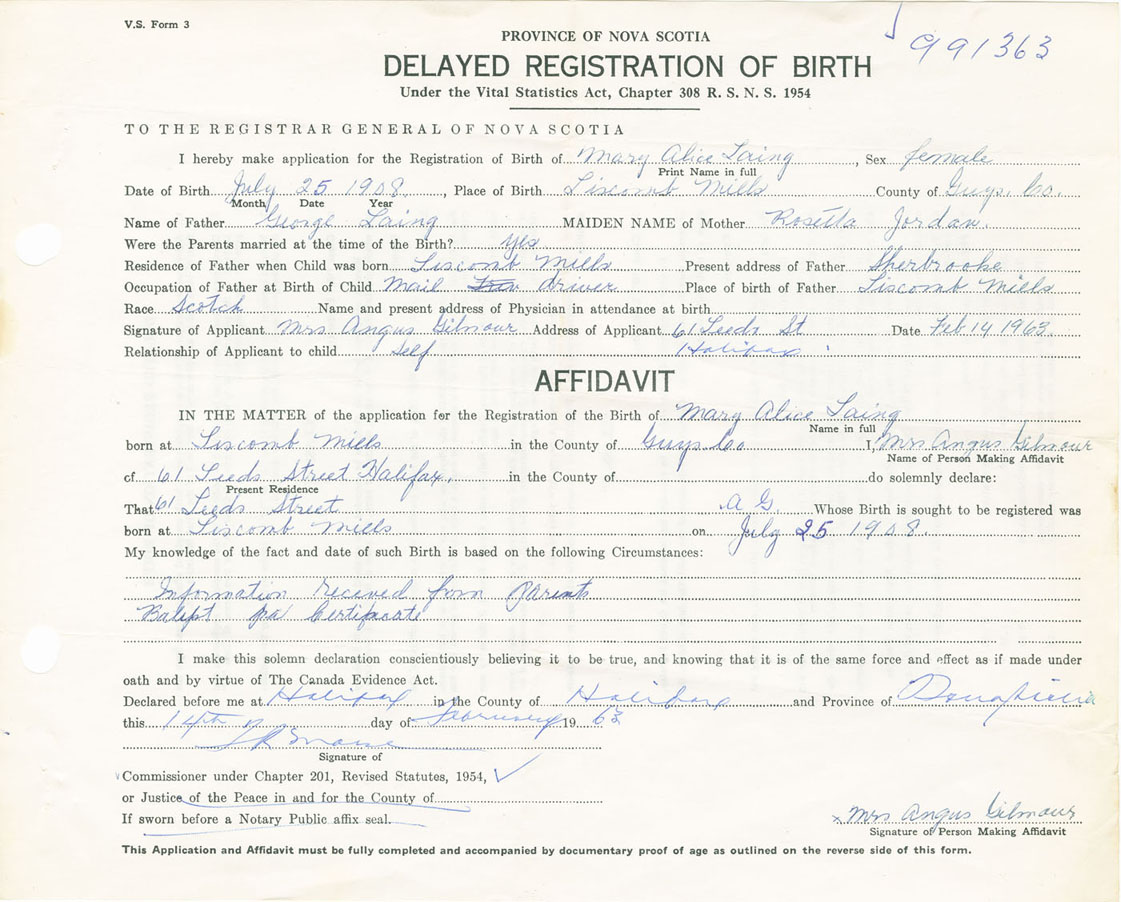 V.S. Form 3
991363
PROVINCE OF NOVA SCOTIA
DELAYED REGISTRATION OF BIRTH
Under the Vital Statistics Act, Chapter 308 R. S. N. S. 1954
TO THE REGISTRAR GENERAL OF NOVA SCOTIA
I hereby make application for the Registration of Birth of Mary Alice Laing, Sex female
Print Name in full
Date of Birth July 25 1908, Place of Birth Liscomb Mills County of Guys. Co.
Month Date Year
Name of Father George Laing MAIDEN NAME of Mother Rosetta Jordan.
Were the Parents married at the time of the Birth? yes
Residence of Father when Child was born Liscomb Mills Present address of Father Sherbrooke
Occupation of Father at Birth of Child Mail driver Place of birth of Father Liscomb Mills
Race Scotch Name and present address of Physician in attendance at birth
Signature of Applicant Mrs. Angus Gilmour Address of Applicant 61 Leeds St Date Feb 14 1963.
Relationship of Applicant to child self Halifax
AFFIDAVIT
IN THE MATTER of the application for the Registration of the Birth of Mary Alice Laing
Name in full
born at Liscomb Mills in the County of Guys Co I, Mrs Angus Gilmour
Name of Person Making Affidavit
of 61 Leeds Street Halifax, in the County of do solemnly declare:
Present Residence
That 61 Leeds Street A G. Whose Birth is sought to be registered was
born at Liscomb Mills on July 25 1908.
My knowledge of the fact and date of such Birth is based on the following Circumstances:
Information received from Parents
Certificate
I make this solemn declaration conscientiously believing it to be true, and knowing that it is of the same force and effect as if made under
oath and by virtue of The Canada Evidence Act.
Declared before me at Halifax in the County of Halifax and Province of
this 14th day of February 19 63
Signature of
Commissioner under Chapter 201, Revised Statutes, 1954,
or Justice of the Peace in and for the County of
If sworn before a Notary Public affix seal.
x Mrs Angus Gilmour
Signature of Person Making Affidavit
This Application and Affidavit must be fully completed and accompanied by documentary proof of age as outlined on the reverse side of this form.